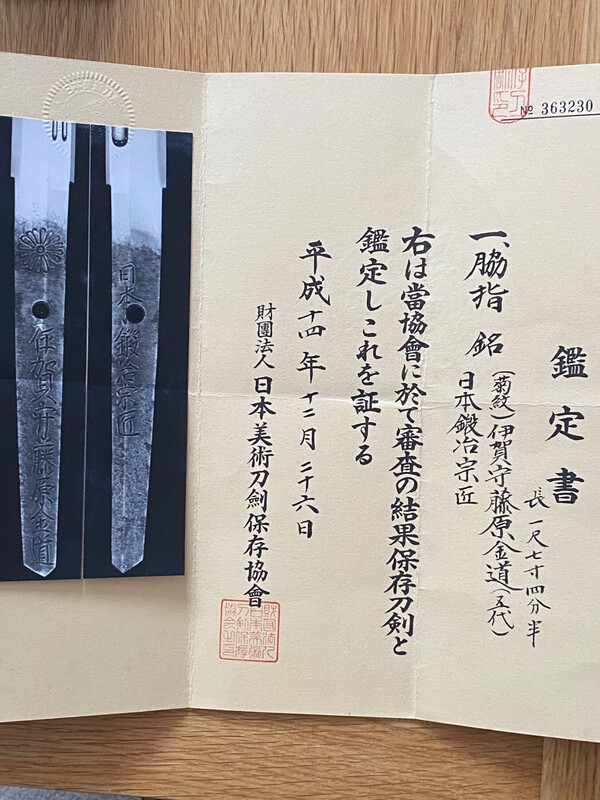 № 363230
鑑定書
一、脇指 銘 (菊紋)伊賀守藤原金道(五代)
日本鍛冶宗匠
長一尺七寸四分半
右は當協會に於て審査の結果保存刀剣と
鑑定しこれを証する
平成十四年十二月二十六日
財團法人 日本美術刀劍保存協會
日本鍛冶宗匠
伊賀守藤原金道